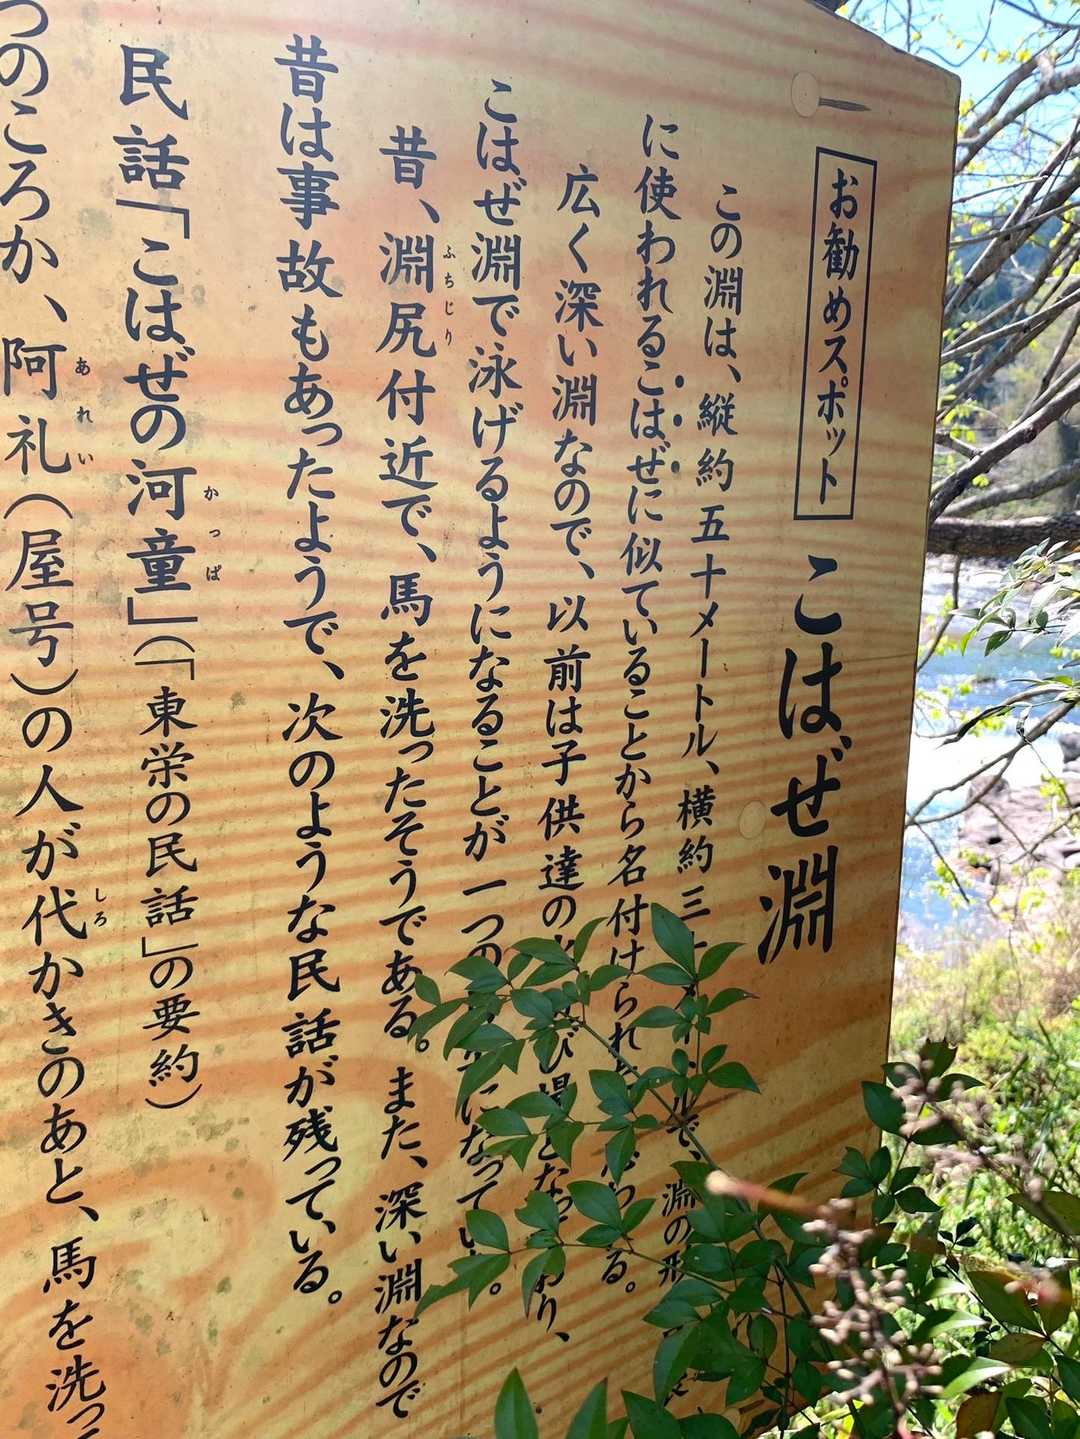 お勧めスポット こはぜ淵
この淵は、縦約五十メートル、横約三 で、淵の形
に使われるこはぜに似ていることから名付けられ る。
広く深い淵なので、以前は子供達の び場となって おり、
こはぜ淵で泳げるようになることが一つの になってい 。
昔、淵尻付近で、馬を洗ったそうである。また、深い淵なので
ふちじり
昔は事故もあったようで、次のような民話が残っている。
民話「こはぜの河童」(「東栄の民話」の要約)
かっぱ
つのころか、阿礼(屋号)の人が代かきのあと、馬を洗っ
あれい
しろ